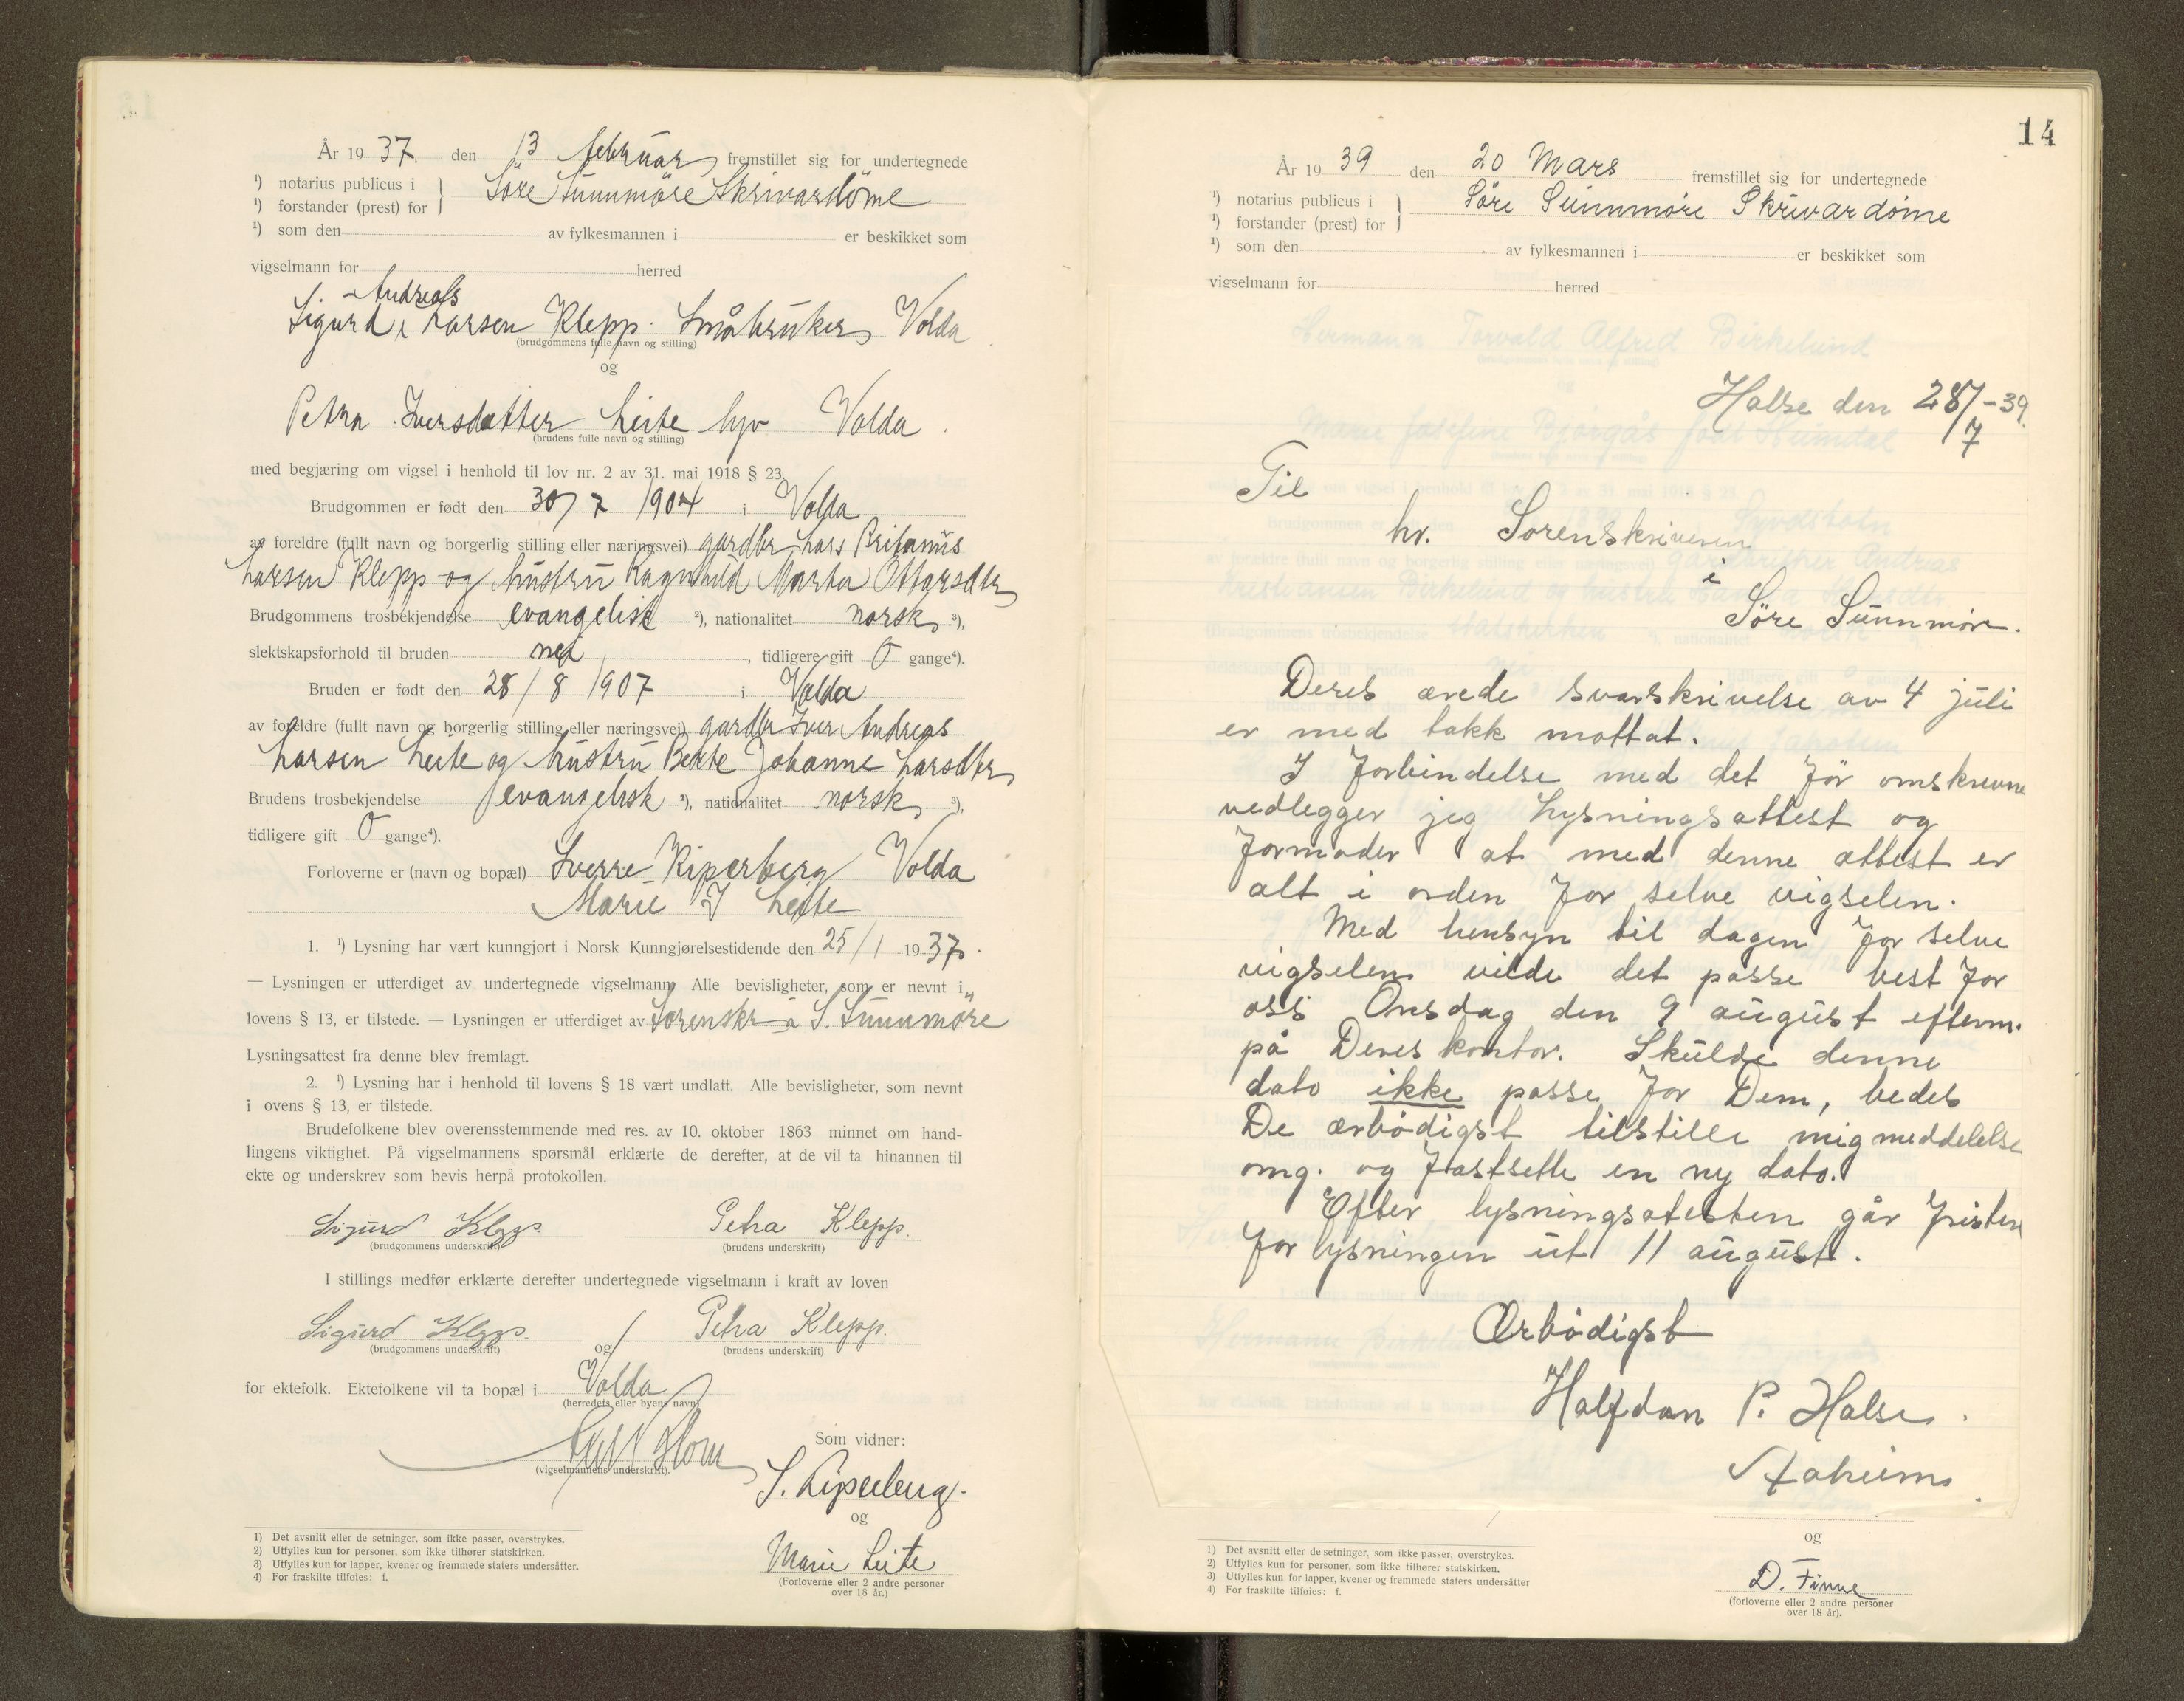 År 1937, den 13 februar fremstillet sig for undertegnede
¹) notarius publicus i
¹) forstander (prest) for
Söre Sunnmöre Skrivardöme
¹) som den av fylkesmannen i er beskikket som
vigselmann for herred
Andreas
Sigurd Larsen Klepp. Småbruker, Volda
(brudgommens fulle navn og stilling)
og
Petra Iversdatter Leite Volda
(brudens fulle navn og stilling)
med begjæring om vigsel i henhold til lov nr. 2 av 31. mai 1918 § 23.
Brudgommen er født den 30/7 1904 i Volda
av foreldre (fullt navn og borgerlig stilling eller næringsvei) gardbr. Lars
Larsen Klepp og hustru Ragnhild Marta Ottarsdtr
Brudgommens trosbekjendelse evangelisk ²), nationalitet norsk ³),
slektskapsforhold til bruden nei, tidligere gift 0 gange⁴).
Bruden er født den 28/8 1907 i Volda
av foreldre (fullt navn og borgerlig stilling eller næringsvei) gardbr Iver Andreas
Larsen Leite og hustru Berte Johanne Larsdtr
Brudens trosbekjendelse evangelisk ²), nationalitet norsk ³),
tidligere gift 0 gange⁴).
Forloverne er (navn og bopæl) Sverre Kiperberg Volda
Marie I Leite
1. ¹) Lysning har vært kunngjort i Norsk Kunngjørelsestidende den 25/1 1937.
— Lysningen er utferdiget av undertegnede vigselmann. Alle bevisligheter, som er nevnt i
lovens § 13, er tilstede. — Lysningen er utferdiget av Sorenskr i S. Sunnmöre
Lysningsattest fra denne blev fremlagt.
2. ¹) Lysning har i henhold til lovens § 18 vært undlatt. Alle bevisligheter, som nevnt
i ovens § 13, er tilstede.
Brudefolkene blev overensstemmende med res. av 10. oktober 1863 minnet om hand-
lingens viktighet. På vigselmannens spørsmål erklærte de derefter, at de vil ta hinannen til
ekte og underskrev som bevis herpå protokollen.
Sigurd Klepp. Petra Klepp.
(brudgommens underskrift) (brudens underskrift)
I stillings medfør erklærte derefter undertegnede vigselmann i kraft av loven
Sigurd Klepp. og Petra Klepp.
(brudgommens underskrift) (brudens underskrift)
for ektefolk. Ektefolkene vil ta bopæl i Volda
(herredets eller byens navn)
(vigselmannens underskrift).
Som vidner:
S. Kiperberg.
og
Marie Leite
(Forloverne eller 2 andre personer
over 18 år.)
1) Det avsnitt eller de setninger, som ikke passer, overstrykes.
2) Utfylles kun for personer, som ikke tilhører statskirken.
3) Utfylles kun for lapper, kvener og fremmede staters undersåtter.
4) For fraskilte tilføies: f.
14
År 1939 den 20 Mars fremstillet sig for undertegnede
¹) notarius publicus i
¹) forstander (prest) for
Söre Sunnmöre Skrivardöme
¹) som den av fylkesmannen i er beskikket som
vigselmann for herred
Halse den 28/7-39.
Til
hr. Sorenskriveren
i
Söre Sunnmöre.
Deres ærede svarskrivelse av 4 juli
er med takk mottat.
I forbindelse med det för omskrevne
vedlegger jeg lysningsattest og
formoder at med denne attest er
alt i orden for selve vigselen.
Med hensyn til dagen for selve
vigselen vilde det passe best for
oss Onsdag den 9 august efterm.
på Deres kontor. Skulde denne
dato ikke passe for Dem, bedes
De ærbödigst tilstille mig meddelelse
omg. og fastsette en ny dato.
Efter lysningsatesten går fristen
for lysningen ut 11 august.
Ærbödigst
Halfdan P. Halse.
Aaheim.
og
D. Finne
(forloverne eller 2 andre personer
over 18 år).
1) Det avsnitt eller de setninger, som ikke passer, overstrykes.
2) Utfylles kun for personer, som ikke tilhører statskirken.
3) Utfylles kun for lapper, kvener og fremmede staters undersåtter
4) For fraskilte tilføies: f.